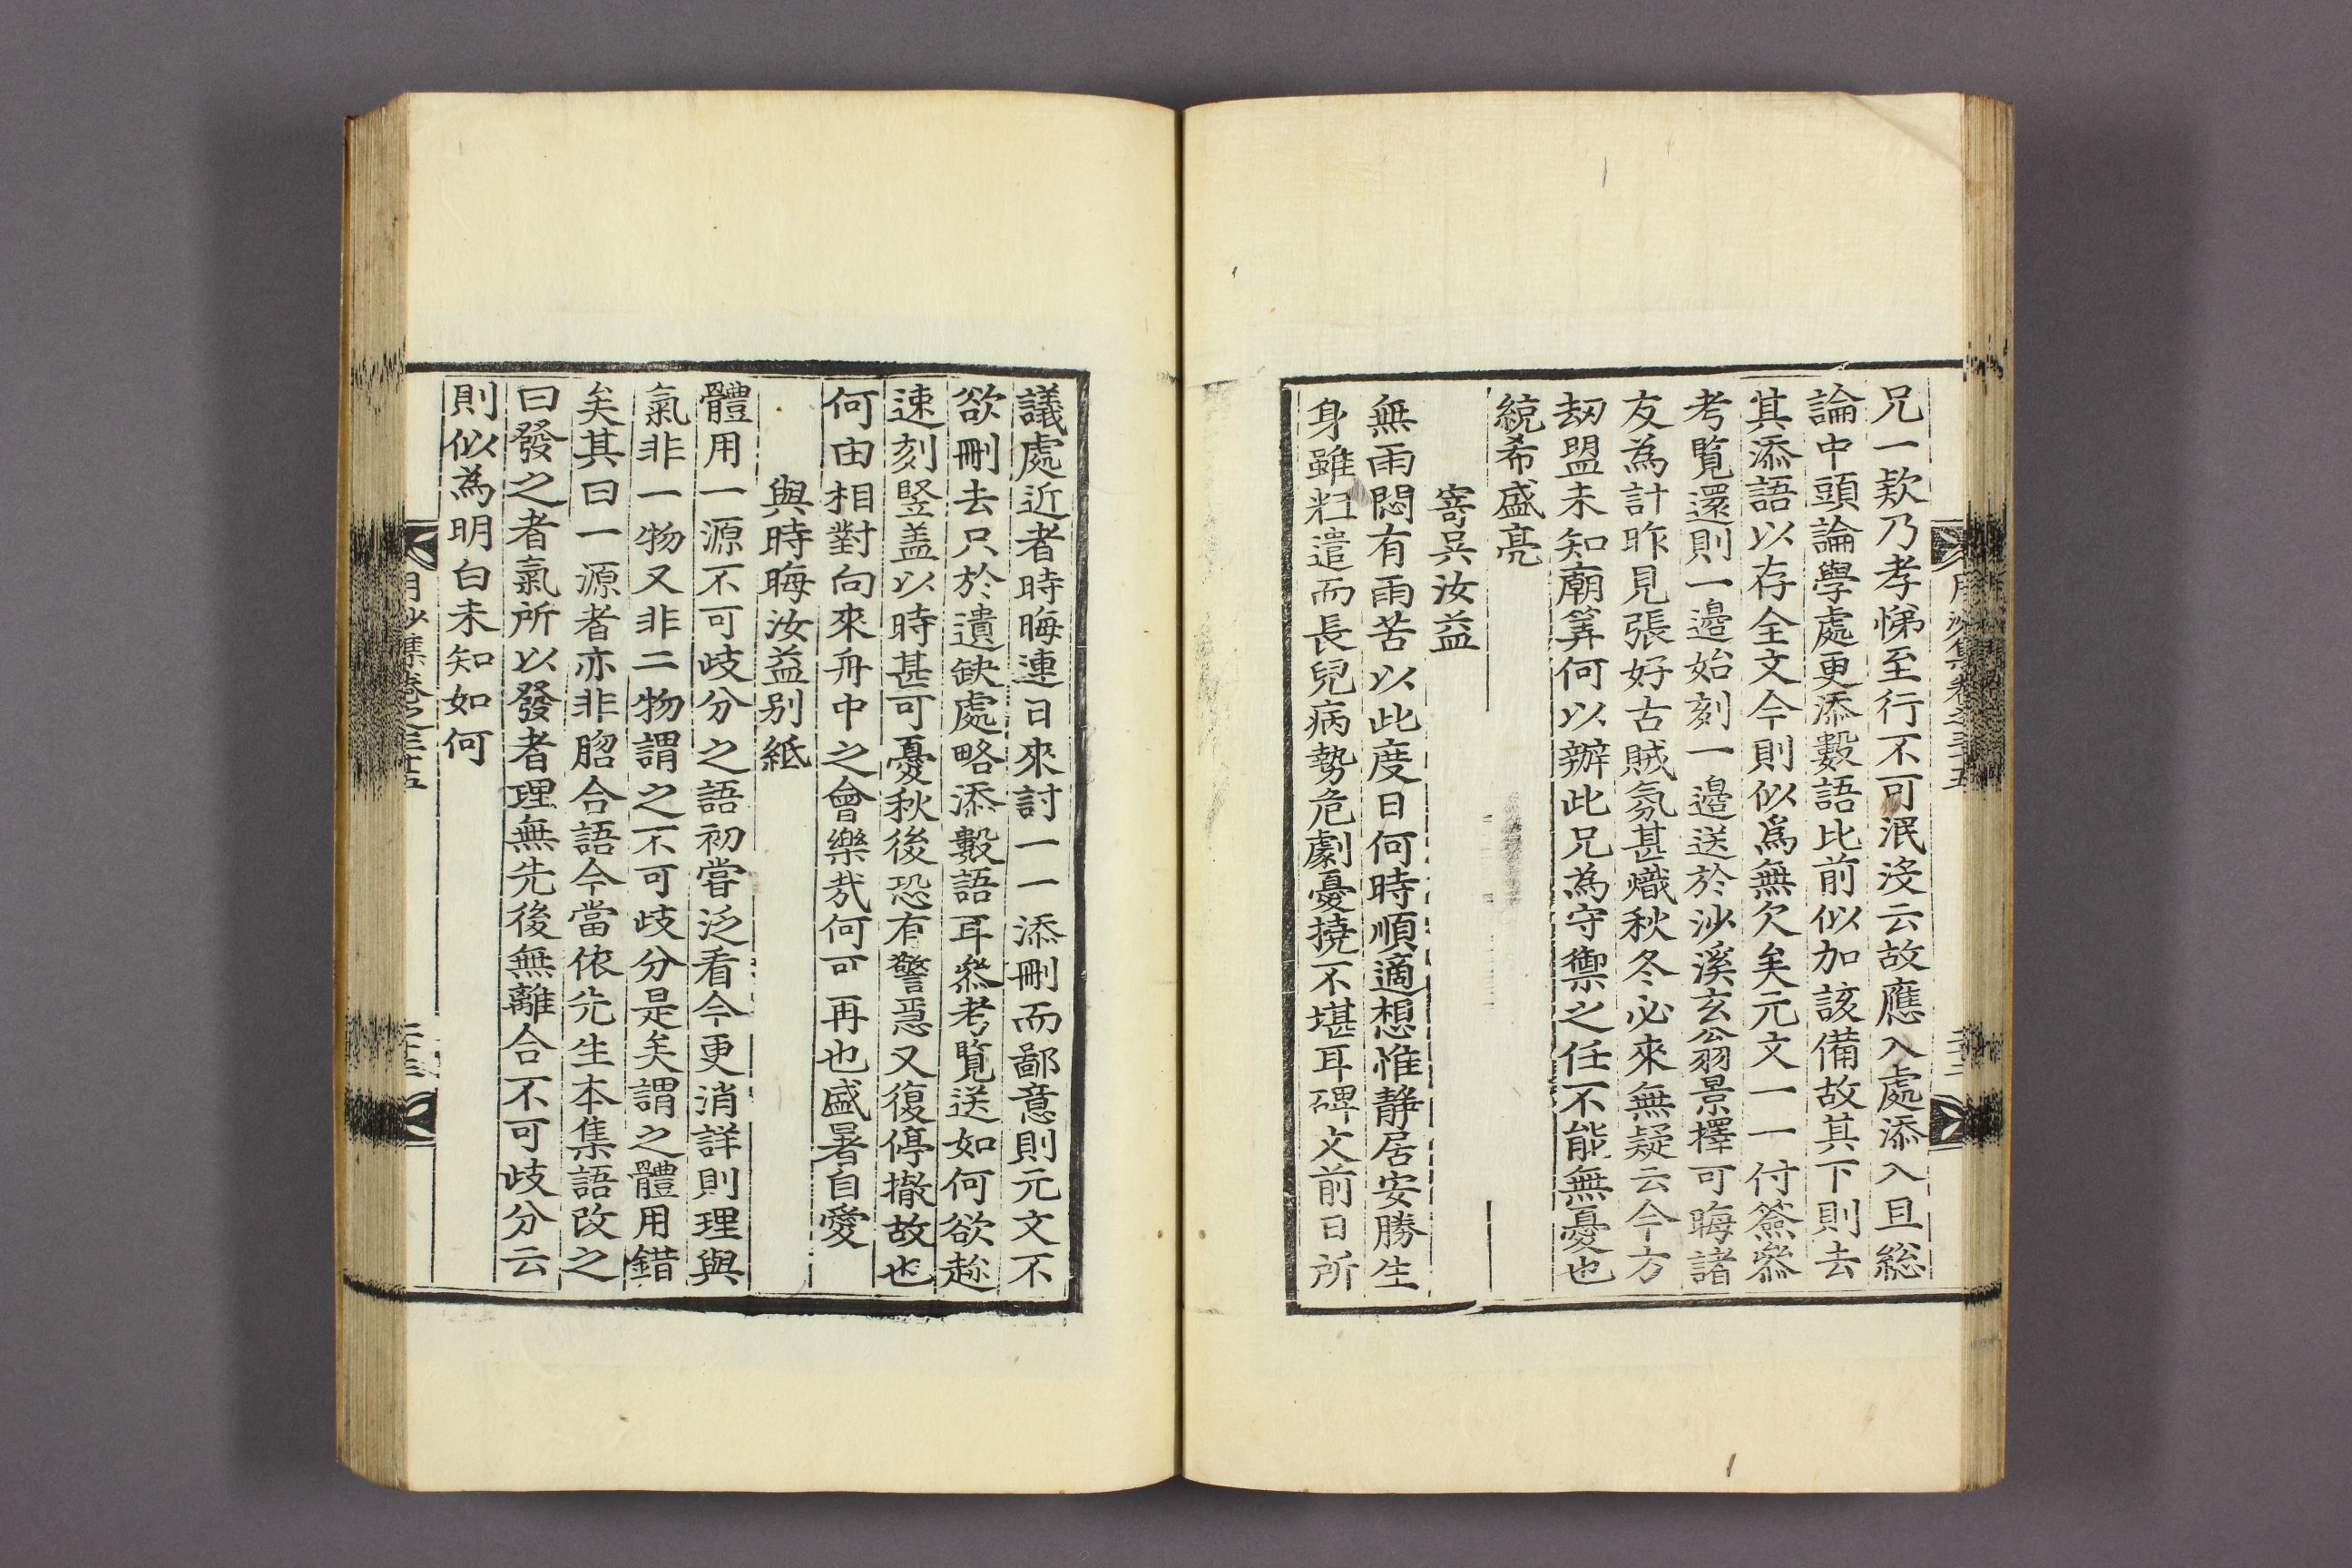 兄一款乃孝悌至行不可泯沒云故應入處添入且総
論中頭論學處更添數語比前似加該備故其下則去
其添語以存全文今則似爲無欠矣元文一一付簽叅
考覧還則一邉始刻一邉送於沙溪玄翁景擇可晦諸
友為計昨見張好古賊氛甚熾秋冬必來無疑云今方
刼盟未知廟筭何以辦此兄為守禦之任不能無憂也
統希盛亮
寄吳汝益
無雨悶有雨苦以此度日何時順適想惟静居安勝生
身雖粗遣而長兒病勢危劇憂撓不堪耳碑文前日所
月沙集卷之三十五
議處近者時晦連日來討一一添刪而鄙意則元文不
欲刪去只於遺缺處略添數語耳叅考覧送如何欲趂
速刻竪盖以時甚可憂秋後恐有警急又復停撤故也
何由相對向來舟中之會樂㢤何可再也盛暑自愛
與時晦汝益别紙
體用一源不可歧分之語初甞泛看今更消詳則理與
氣非一物又非二物謂之不可歧分是矣謂之體用錯
矣其曰一源者亦非脗合語今當依先生本集語改之
曰發之者氣所以發者理無先後無離合不可歧分云
則似為明白未知如何
月沙集卷之三十五